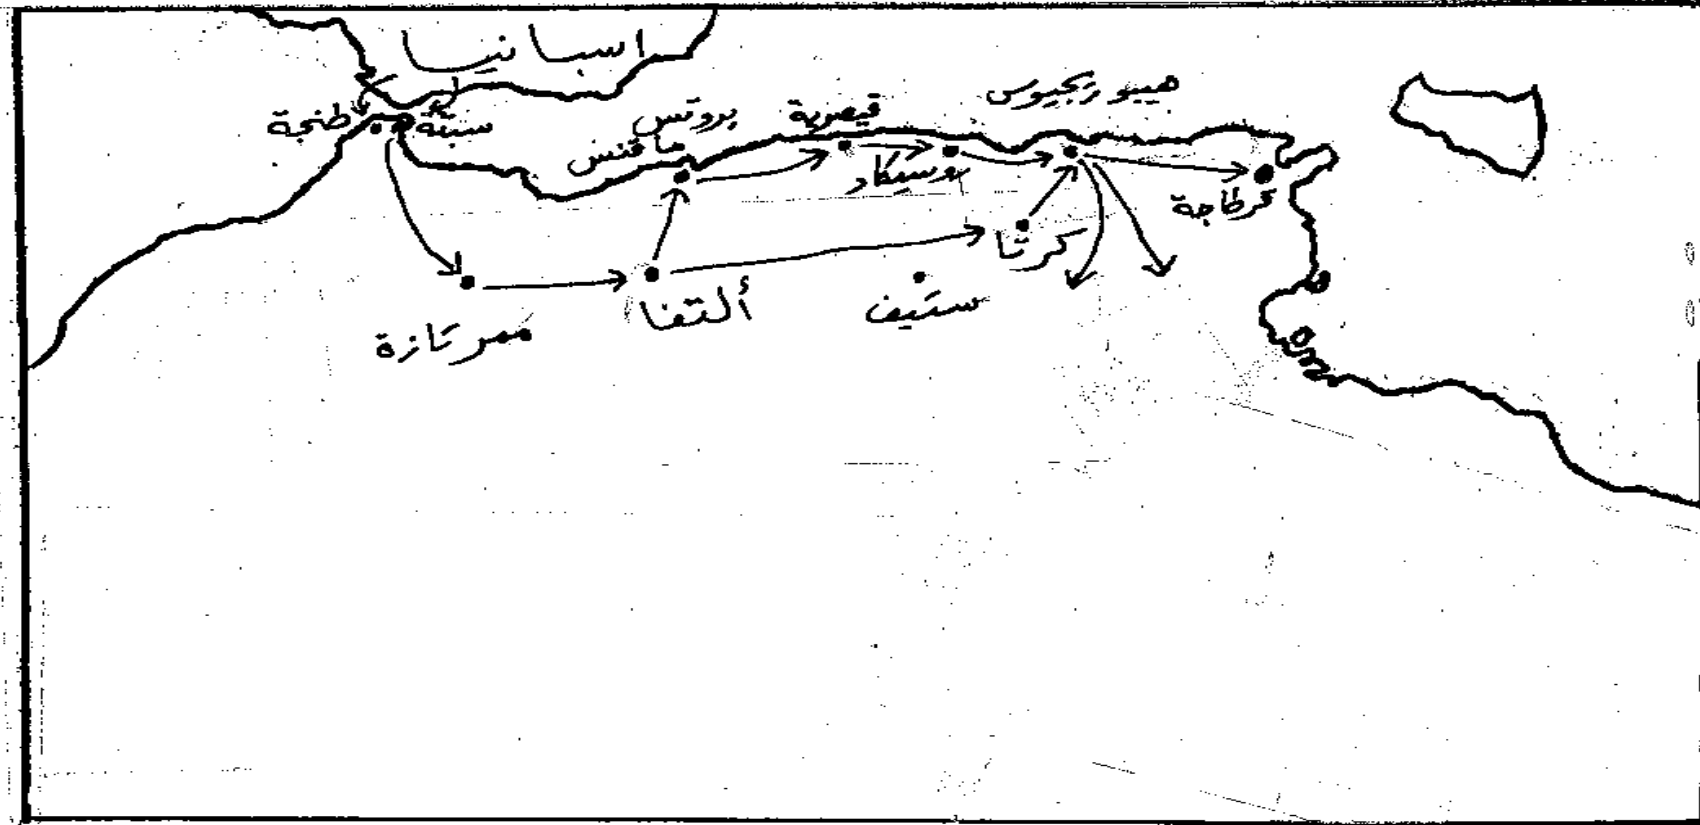 اسبانيا
طنجة
سبتة
بروتس
ماقنس
قيصرية
روسيكاد
هيبو ريجيوس
قرطاجة
كرتا
ستيف
ألتفا
ممر تازة